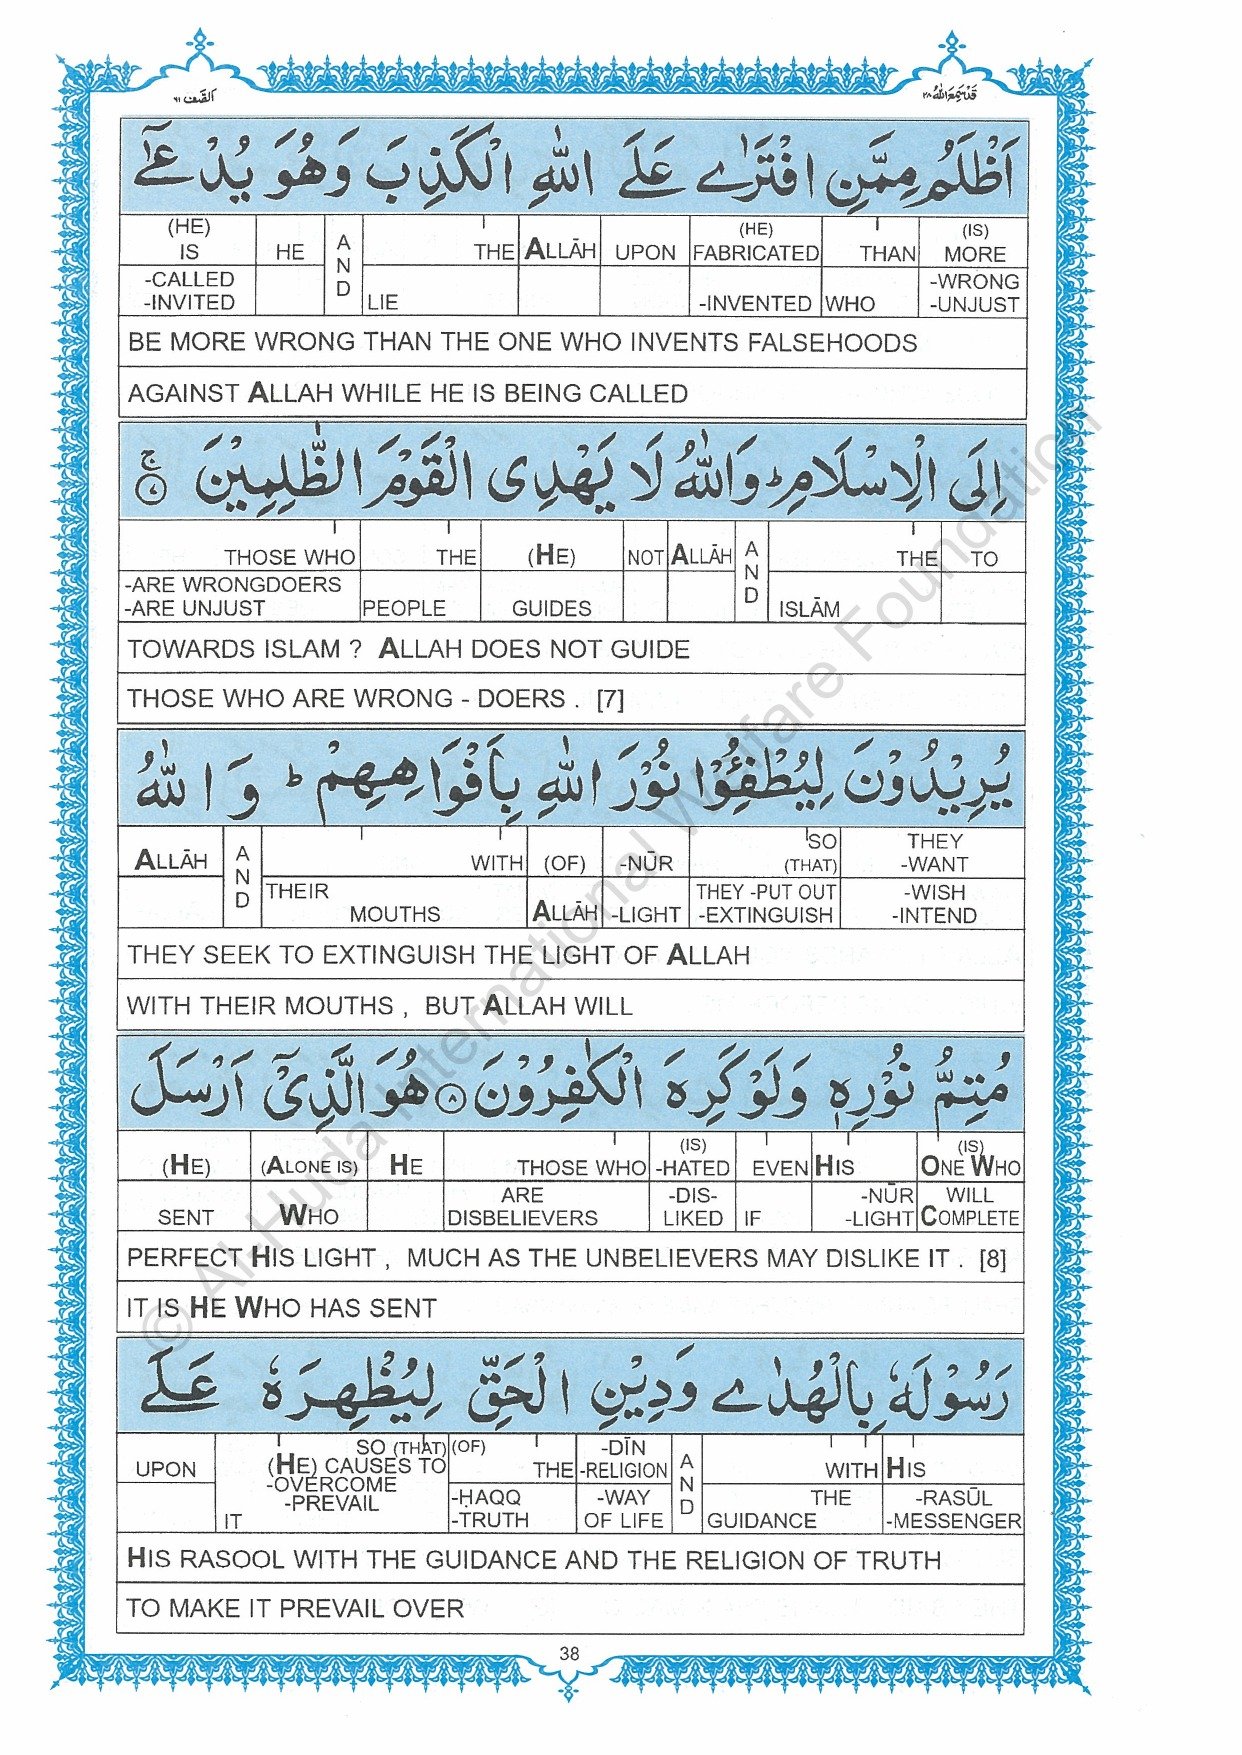 الصف ٦١
قد سمع الله ٢٨
اَظْلَمُ مِمَّنِ افْتَرٰے عَلَے اللّٰهِ الْكَذِبَ وَهُوَ يُدْعٰٓے
(HE) IS | HE | AND | THE | ALLĀH | UPON | (HE) FABRICATED | THAN | (IS) MORE
-CALLED -INVITED | LIE | -INVENTED | WHO | -WRONG -UNJUST
BE MORE WRONG THAN THE ONE WHO INVENTS FALSEHOODS
AGAINST ALLAH WHILE HE IS BEING CALLED
اِلَى الْاِسْلَامِ ؕ وَاللّٰهُ لَا يَهْدِى الْقَوْمَ الظّٰلِمِيْنَ ۚ ٧
THOSE WHO | THE | (HE) | NOT | ALLĀH | AND | THE | TO
-ARE WRONGDOERS -ARE UNJUST | PEOPLE | GUIDES | ISLĀM
TOWARDS ISLAM ? ALLAH DOES NOT GUIDE
THOSE WHO ARE WRONG - DOERS . [7]
يُرِيْدُوْنَ لِيُطْفِئُوْا نُوْرَ اللّٰهِ بِاَفْوَاهِهِمْ ؕ وَاللّٰهُ
ALLĀH | AND | WITH | (OF) | -NŪR | SO (THAT) | THEY -WANT
THEIR MOUTHS | ALLĀH | -LIGHT | THEY -PUT OUT -EXTINGUISH | -WISH -INTEND
THEY SEEK TO EXTINGUISH THE LIGHT OF ALLAH
WITH THEIR MOUTHS , BUT ALLAH WILL
مُتِمُّ نُوْرِهٖ وَلَوْ كَرِهَ الْكٰفِرُوْنَ ٨ هُوَ الَّذِىْٓ اَرْسَلَ
(HE) | (ALONE IS) | HE | THOSE WHO | (IS) -HATED | EVEN | HIS | (IS) ONE WHO
SENT | WHO | ARE DISBELIEVERS | -DIS-LIKED | IF | -NŪR -LIGHT | WILL COMPLETE
PERFECT HIS LIGHT , MUCH AS THE UNBELIEVERS MAY DISLIKE IT . [8]
IT IS HE WHO HAS SENT
رَسُوْلَهٗ بِالْهُدٰے وَدِيْنِ الْحَقِّ لِيُظْهِرَهٗ عَلَے
UPON | SO (THAT) (HE) CAUSES TO -OVERCOME -PREVAIL | (OF) THE | -DĪN -RELIGION | AND | WITH | HIS
IT | -ḤAQQ -TRUTH | -WAY OF LIFE | THE GUIDANCE | -RASŪL -MESSENGER
HIS RASOOL WITH THE GUIDANCE AND THE RELIGION OF TRUTH
TO MAKE IT PREVAIL OVER
38
© Al-Huda International Welfare Foundation